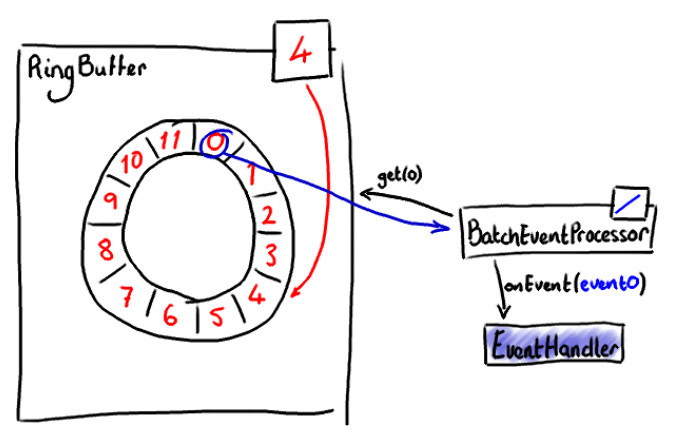 4
RingBuffer
0
1
2
3
4
5
6
7
8
9
10
11
get(0)
BatchEventProcessor
onEvent(event0)
EventHandler